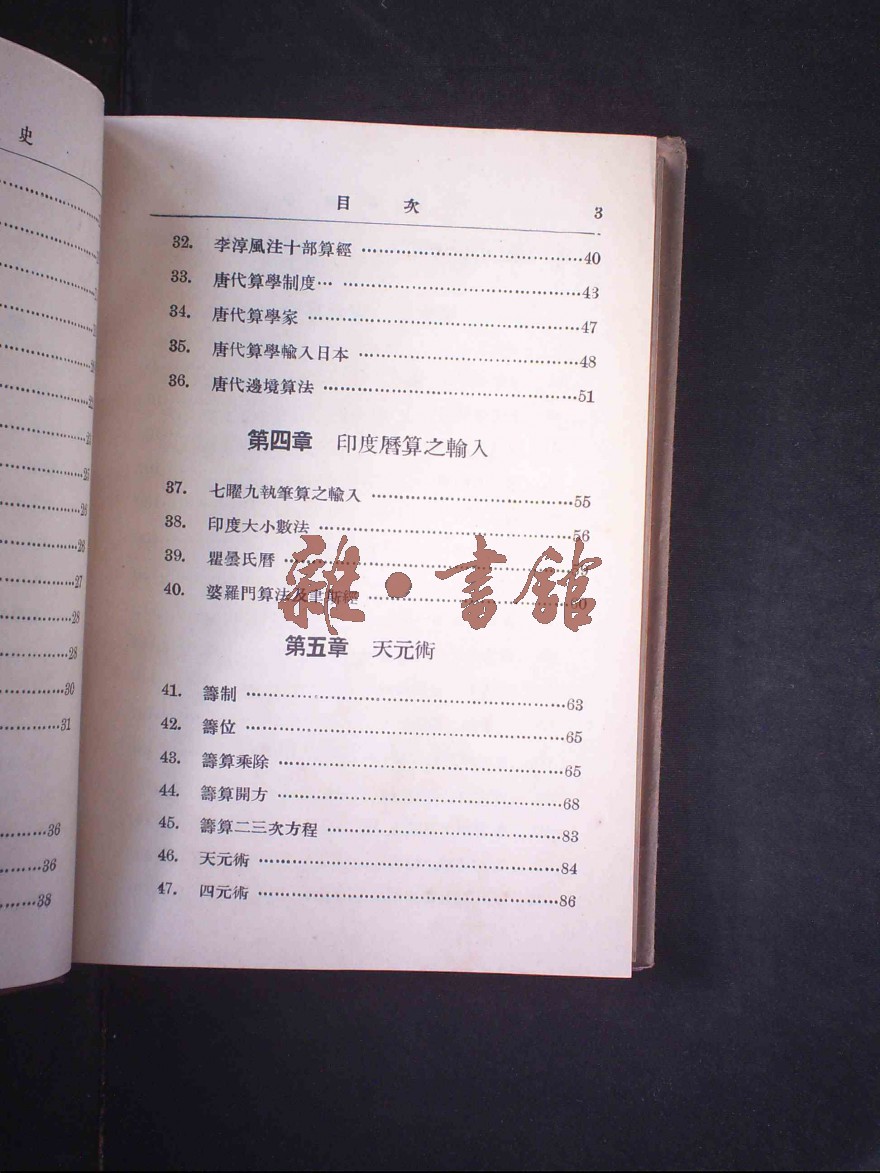 史
31
36
36
38
目 次 3
32. 李淳風注十部算經 ……40
33. 唐代算學制度… ……43
34. 唐代算學家 ……47
35. 唐代算學輸入日本 ……48
36. 唐代邊境算法 ……51
第四章 印度曆算之輸入
37. 七曜九執筆算之輸入 ……55
38. 印度大小數法 ……56
39. 瞿曇氏曆 ……
40. 婆羅門算法及聿斯經 ……60
第五章 天元術
41. 籌制 ……63
42. 籌位 ……65
43. 籌算乘除 ……65
44. 籌算開方 ……68
45. 籌算二三次方程 ……83
46. 天元術 ……84
47. 四元術 ……86
雜·書館